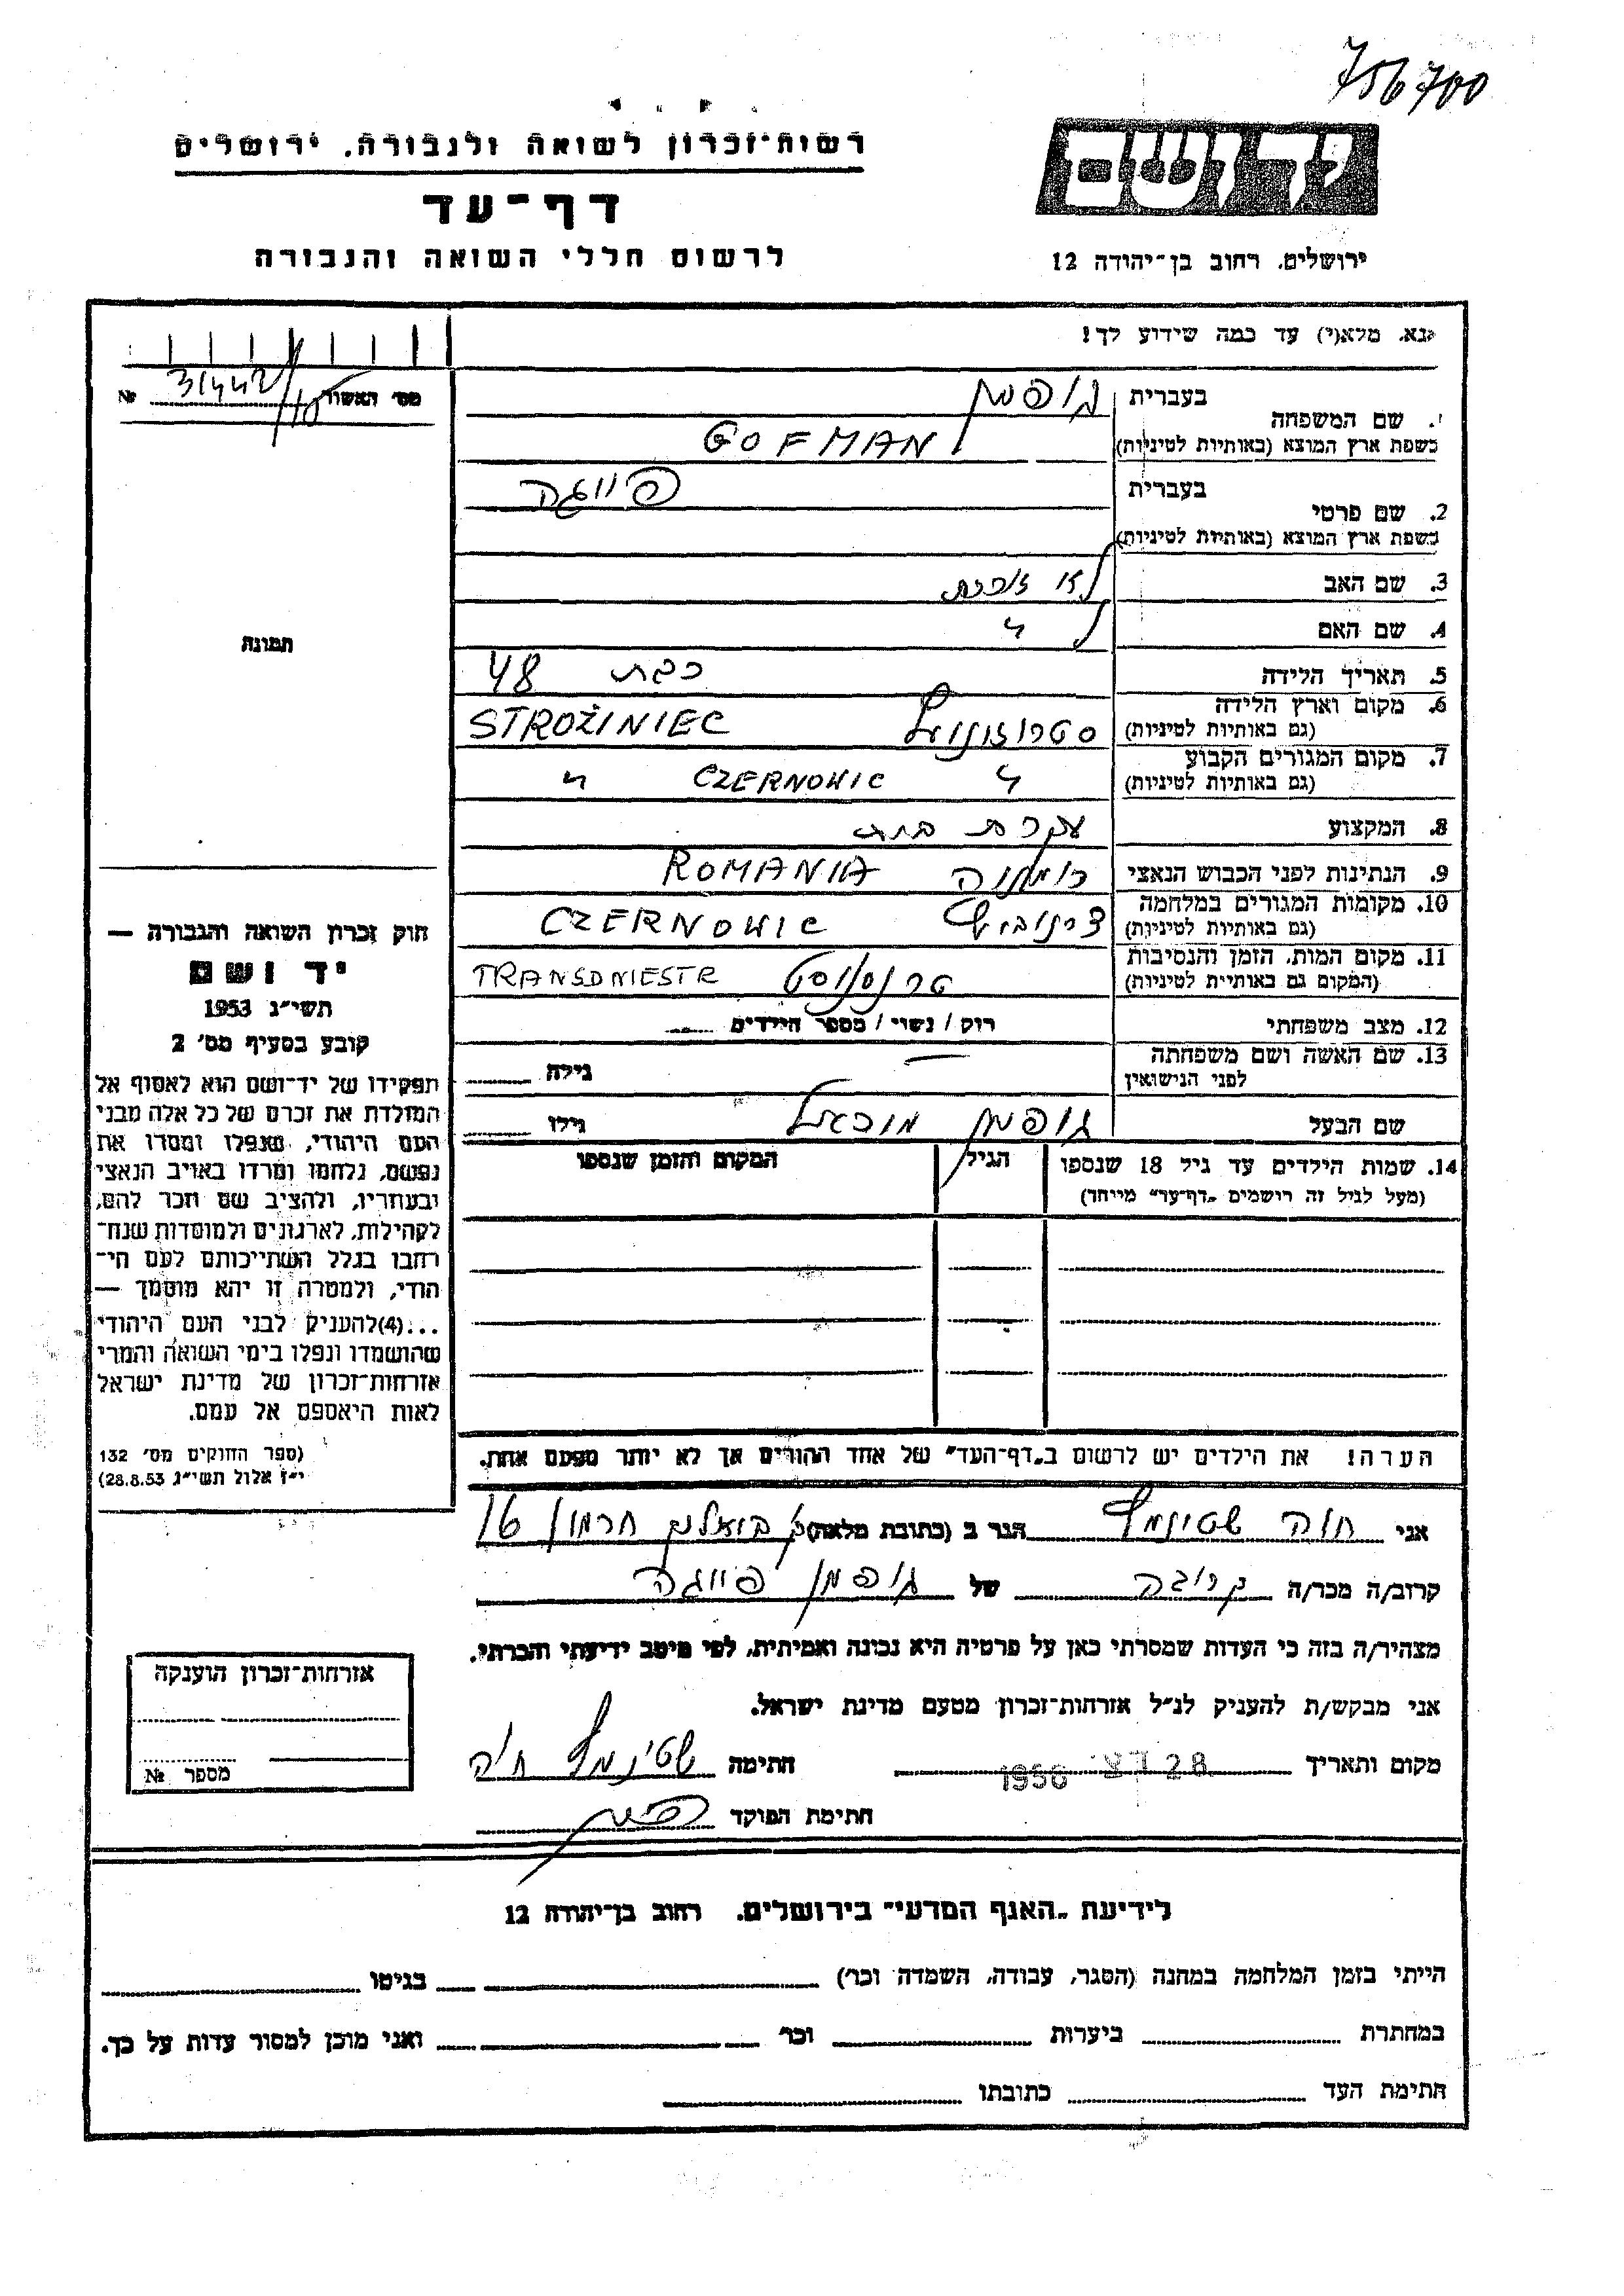 756700
רשות־זכרון לשואה ולגבורה, ירושלים
דף־עד
לרשום חללי השואה והגבורה
יד ושם
ירושלים, רחוב בן־יהודה 12
נא, מלא(י) עד כמה שידוע לך!
מס' האשור 31442/10 №
1. שם המשפחה
בעברית גופמן
בשפת ארץ המוצא (באותיות לטיניות) GOFMAN
2. שם פרטי
בעברית פייגה
בשפת ארץ המוצא (באותיות לטיניות)
3. שם האב לא זוכרת
4. שם האם ל "
5. תאריך הלידה כבת 48
6. מקום וארץ הלידה (גם באותיות לטיניות) STROŽINIEC
7. מקום המגורים הקבוע (גם באותיות לטיניות) " CZERNOWIC "
8. המקצוע עקרת בית
9. הנתינות לפני הכבוש הנאצי רומניה ROMANIA
10. מקומות המגורים במלחמה (גם באותיות לטיניות) CZERNOWIC
11. מקום המות, הזמן והנסיבות (המקום גם באותיות לטיניות) TRANSDNIESTR
12. מצב משפחתי רוק / נשוי / מספר הילדים
13. שם האשה ושם משפחתה לפני הנישואין גילה
שם הבעל גופמן מיכאל גילו
14. שמות הילדים עד גיל 18 שנספו הגיל המקום והזמן שנספו
(מעל לגיל זה רושמים „דף־עד" מייחד)
הערה! את הילדים יש לרשום ב„דף־העד" של אחד ההורים אך לא יותר מפעם אחת.
תמונה
חוק זכרון השואה והגבורה —
יד ושם
תשי"ג 1953
קובע בסעיף מס' 2
תפקידו של יד־ושם הוא לאסוף אל
המולדת את זכרם של כל אלה מבני
העם היהודי, שנפלו ומסרו את
נפשם, נלחמו ומרדו באויב הנאצי
ובעוזריו, ולהציב שם וזכר להם,
לקהילות, לארגונים ולמוסדות שנח־
רבו בגלל השתייכותם לעם הי־
הודי, ולמטרה זו יהא מוסמך —
...(4)להעניק לבני העם היהודי
שהושמדו ונפלו בימי השואה והמרי
אזרחות־זכרון של מדינת ישראל
לאות היאספם אל עמם.
(ספר החוקים מס' 132
י"ז אלול תשי"ג 28.8.53)
אני חוה הגר ב (כתובת מלאה) חרמון 16
קרוב/ה מכר/ה קרובה של גופמן פייגה
מצהיר/ה בזה כי העדות שמסרתי כאן על פרטיה היא נכונה ואמיתית, לפי מיטב ידיעתי והכרתי.
אני מבקש/ת להעניק לנ"ל אזרחות־זכרון מטעם מדינת ישראל.
מקום ותאריך 28 דצ 1956 חתימה חיה
חתימת הפוקד
אזרחות־זכרון הוענקה
מספר №
לידיעת „האגף המדעי" בירושלים, רחוב בן־יהודה 12
הייתי בזמן המלחמה במחנה (הסגר, עבודה, השמדה וכו') בגיטו
במחתרת ביערות וכו' ואני מוכן למסור עדות על כך.
חתימת העד כתובתו